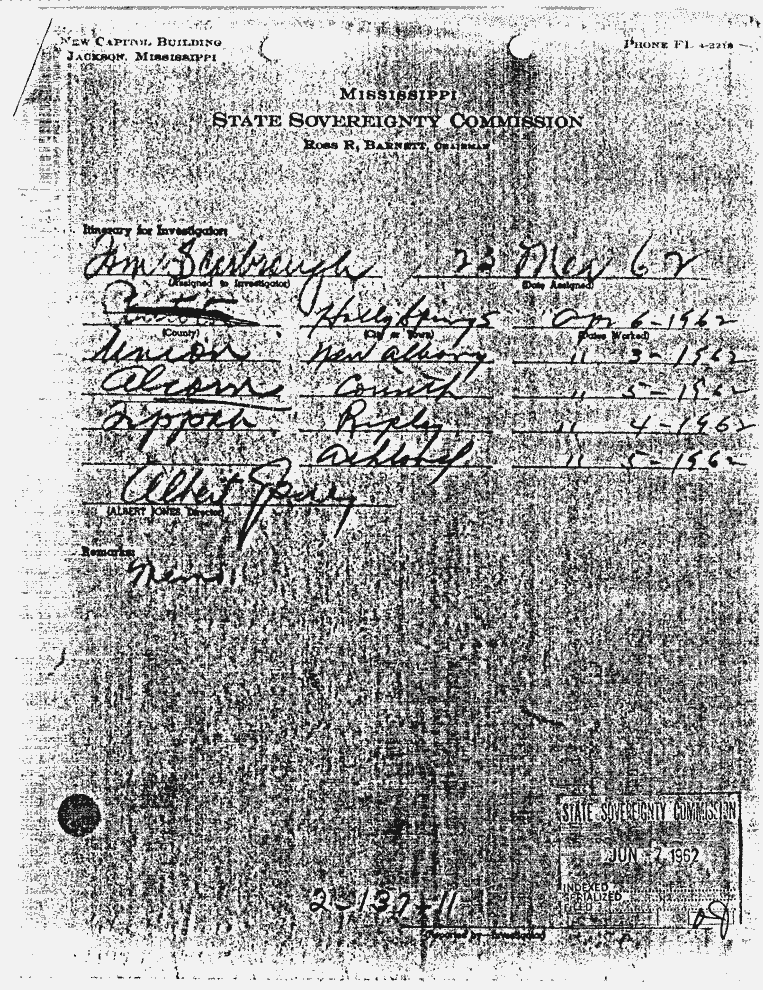 NEW CAPITOL BUILDING PHONE FL
JACKSON, MISSISSIPPI
MISSISSIPPI
STATE SOVEREIGNTY COMMISSION
ROSS R. BARNETT, CHAIRMAN
Itinerary for Investigator:
Tom Scarbrough 23 Mar 62
(Assigned to Investigator) (Date Assigned)
Holly Springs Apr 6-1962
(County) (City or Town) (Dates Worked)
Union New Albany " 3-1962
Alcorn Corinth " 5-1962
Tippah Ripley " 4-1962
Ashland " 5-1962
Albert Jones
(ALBERT JONES Director)
Remarks:
Memo
STATE SOVEREIGNTY COMMISSION
JUN 1962
INDEXED
SERIALIZED
FILED
2-137-11